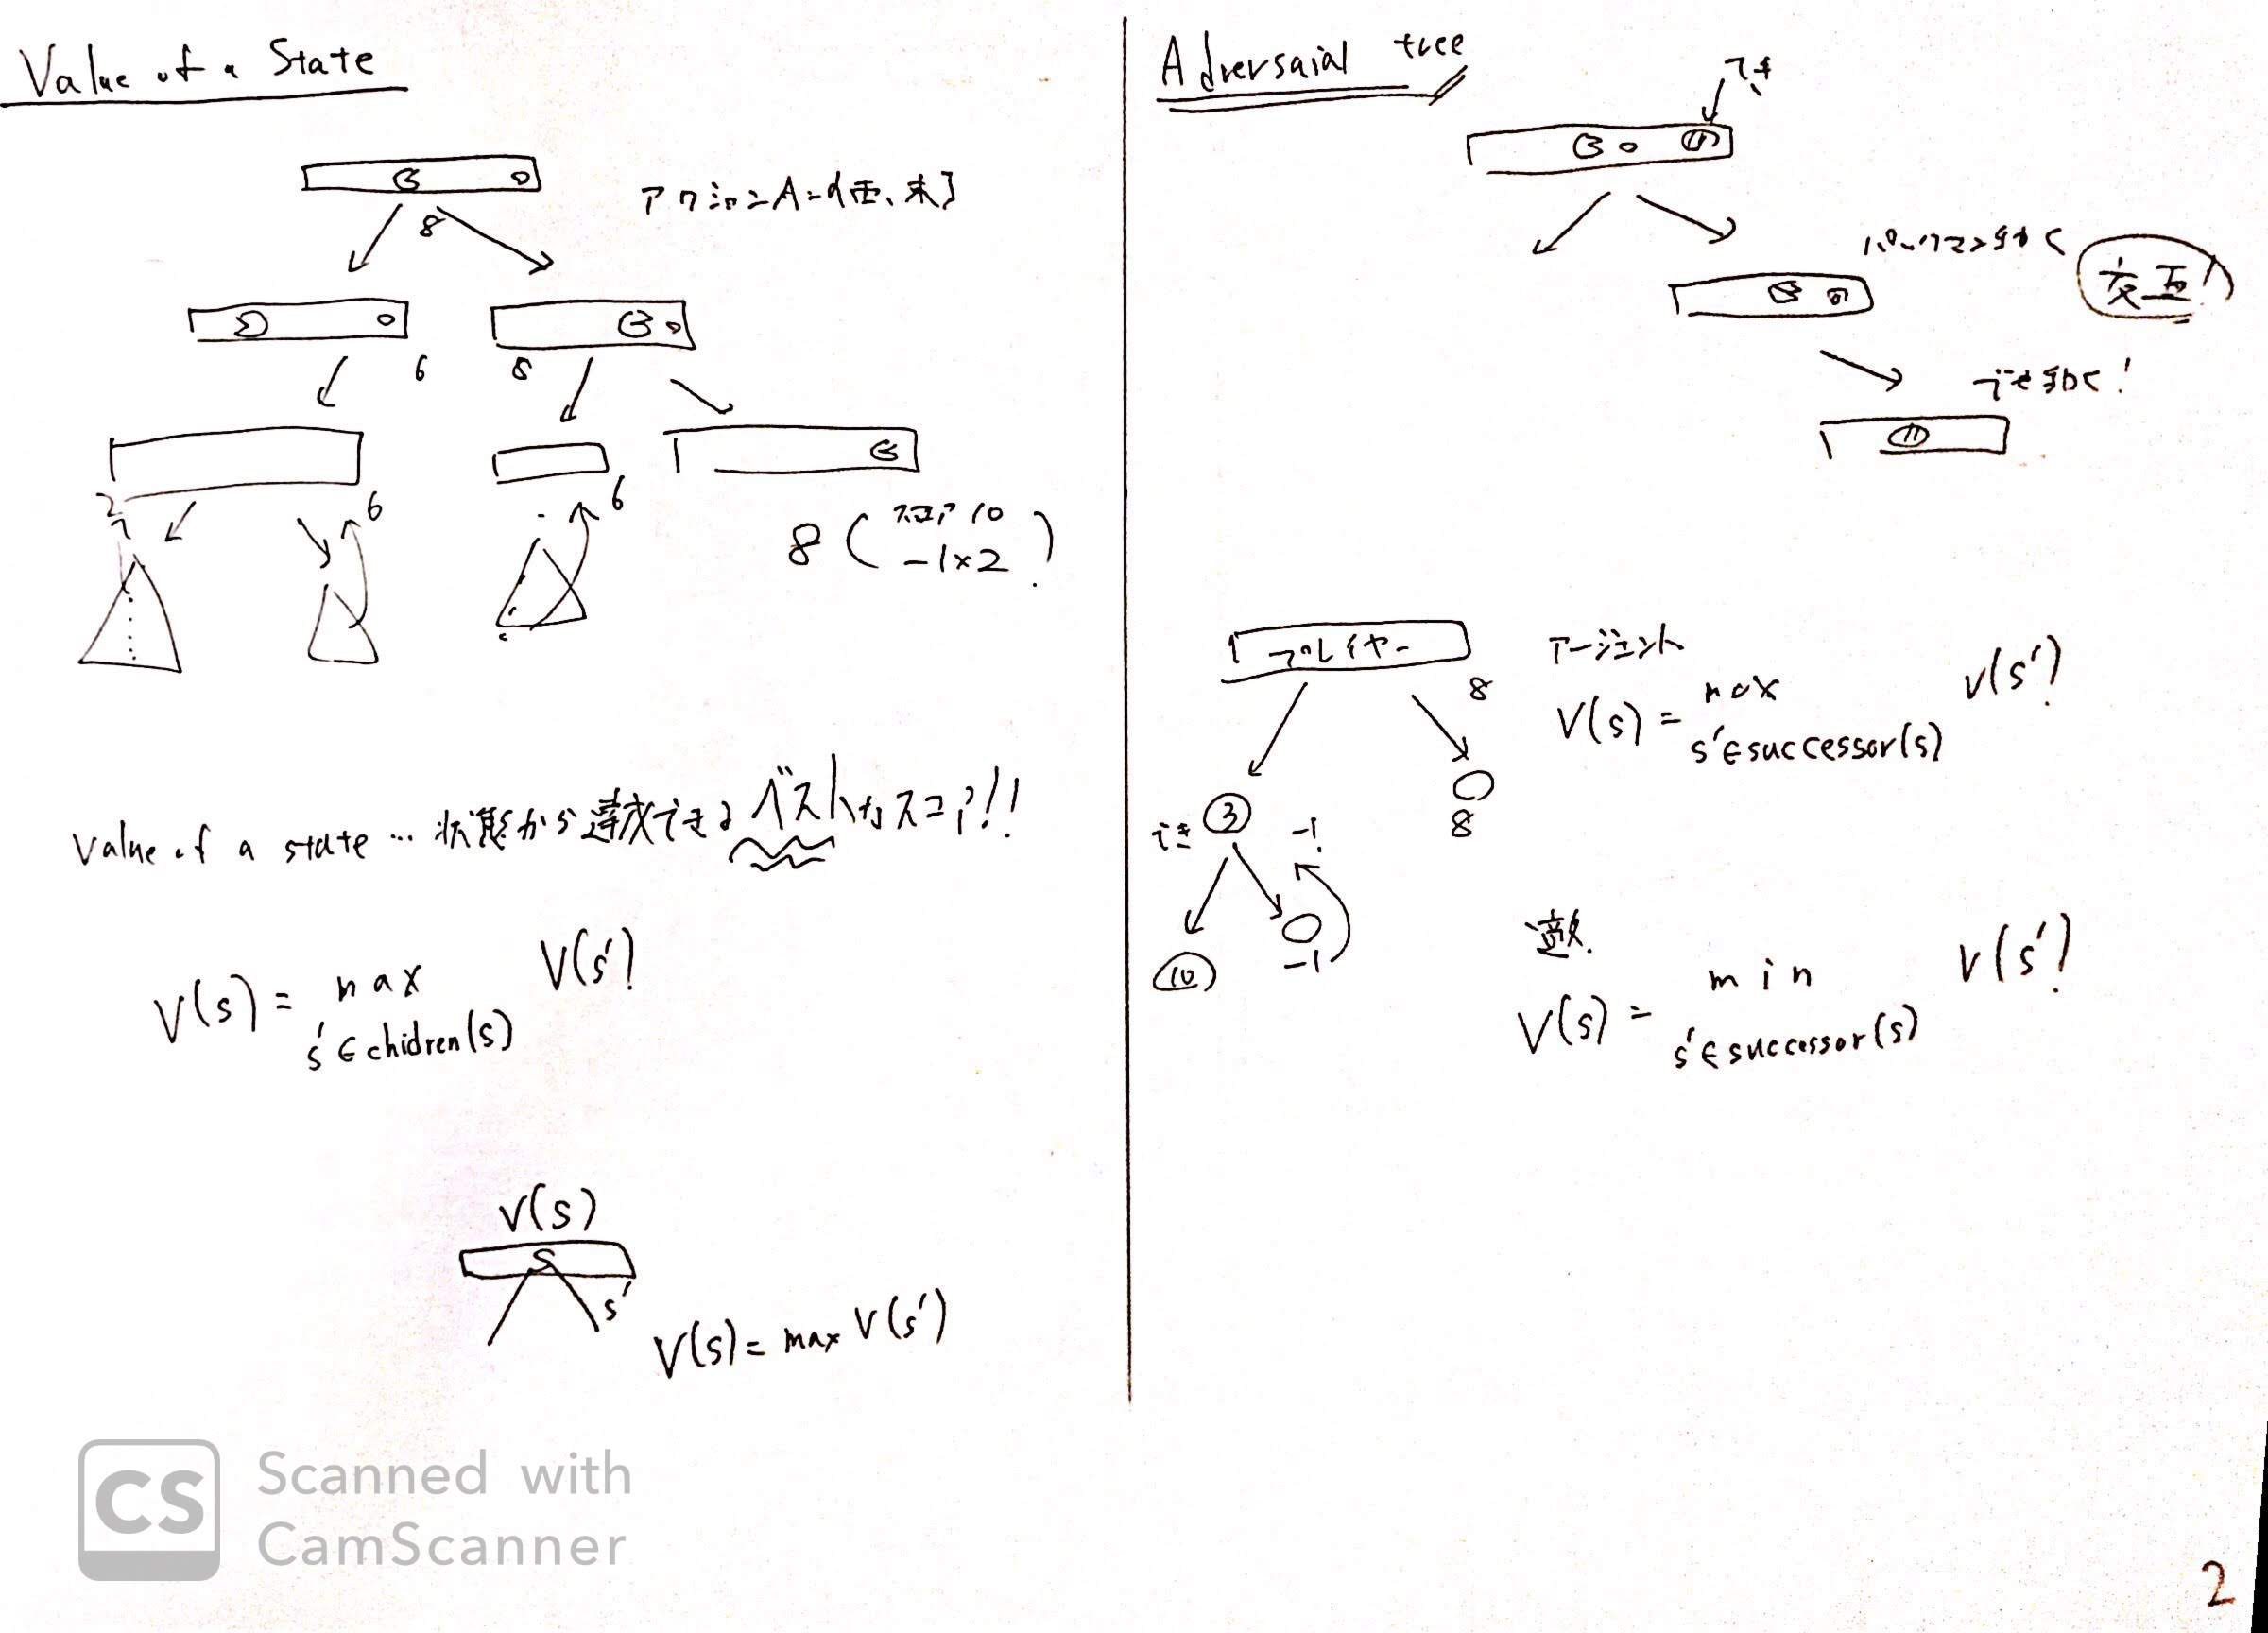 Value of a State
アクションA={西、東}
8
6
8
2
6
6
8(スコア10
-1×2)
Value of a state … 状態から達成できるベストなスコア!!
V(s) = max V(s')
s'∈chidren(s)
V(s)
s
s'
V(s) = max V(s')
Adversaial tree
てき
パックマン動く
交互
てき動く!
プレイヤー
8
エージェント
V(s) = max V(s')
s'∈successor(s)
てき
3
-1
8
10
-1
敵
V(s) = min V(s')
s'∈successor(s)
CS
Scanned with
CamScanner
2